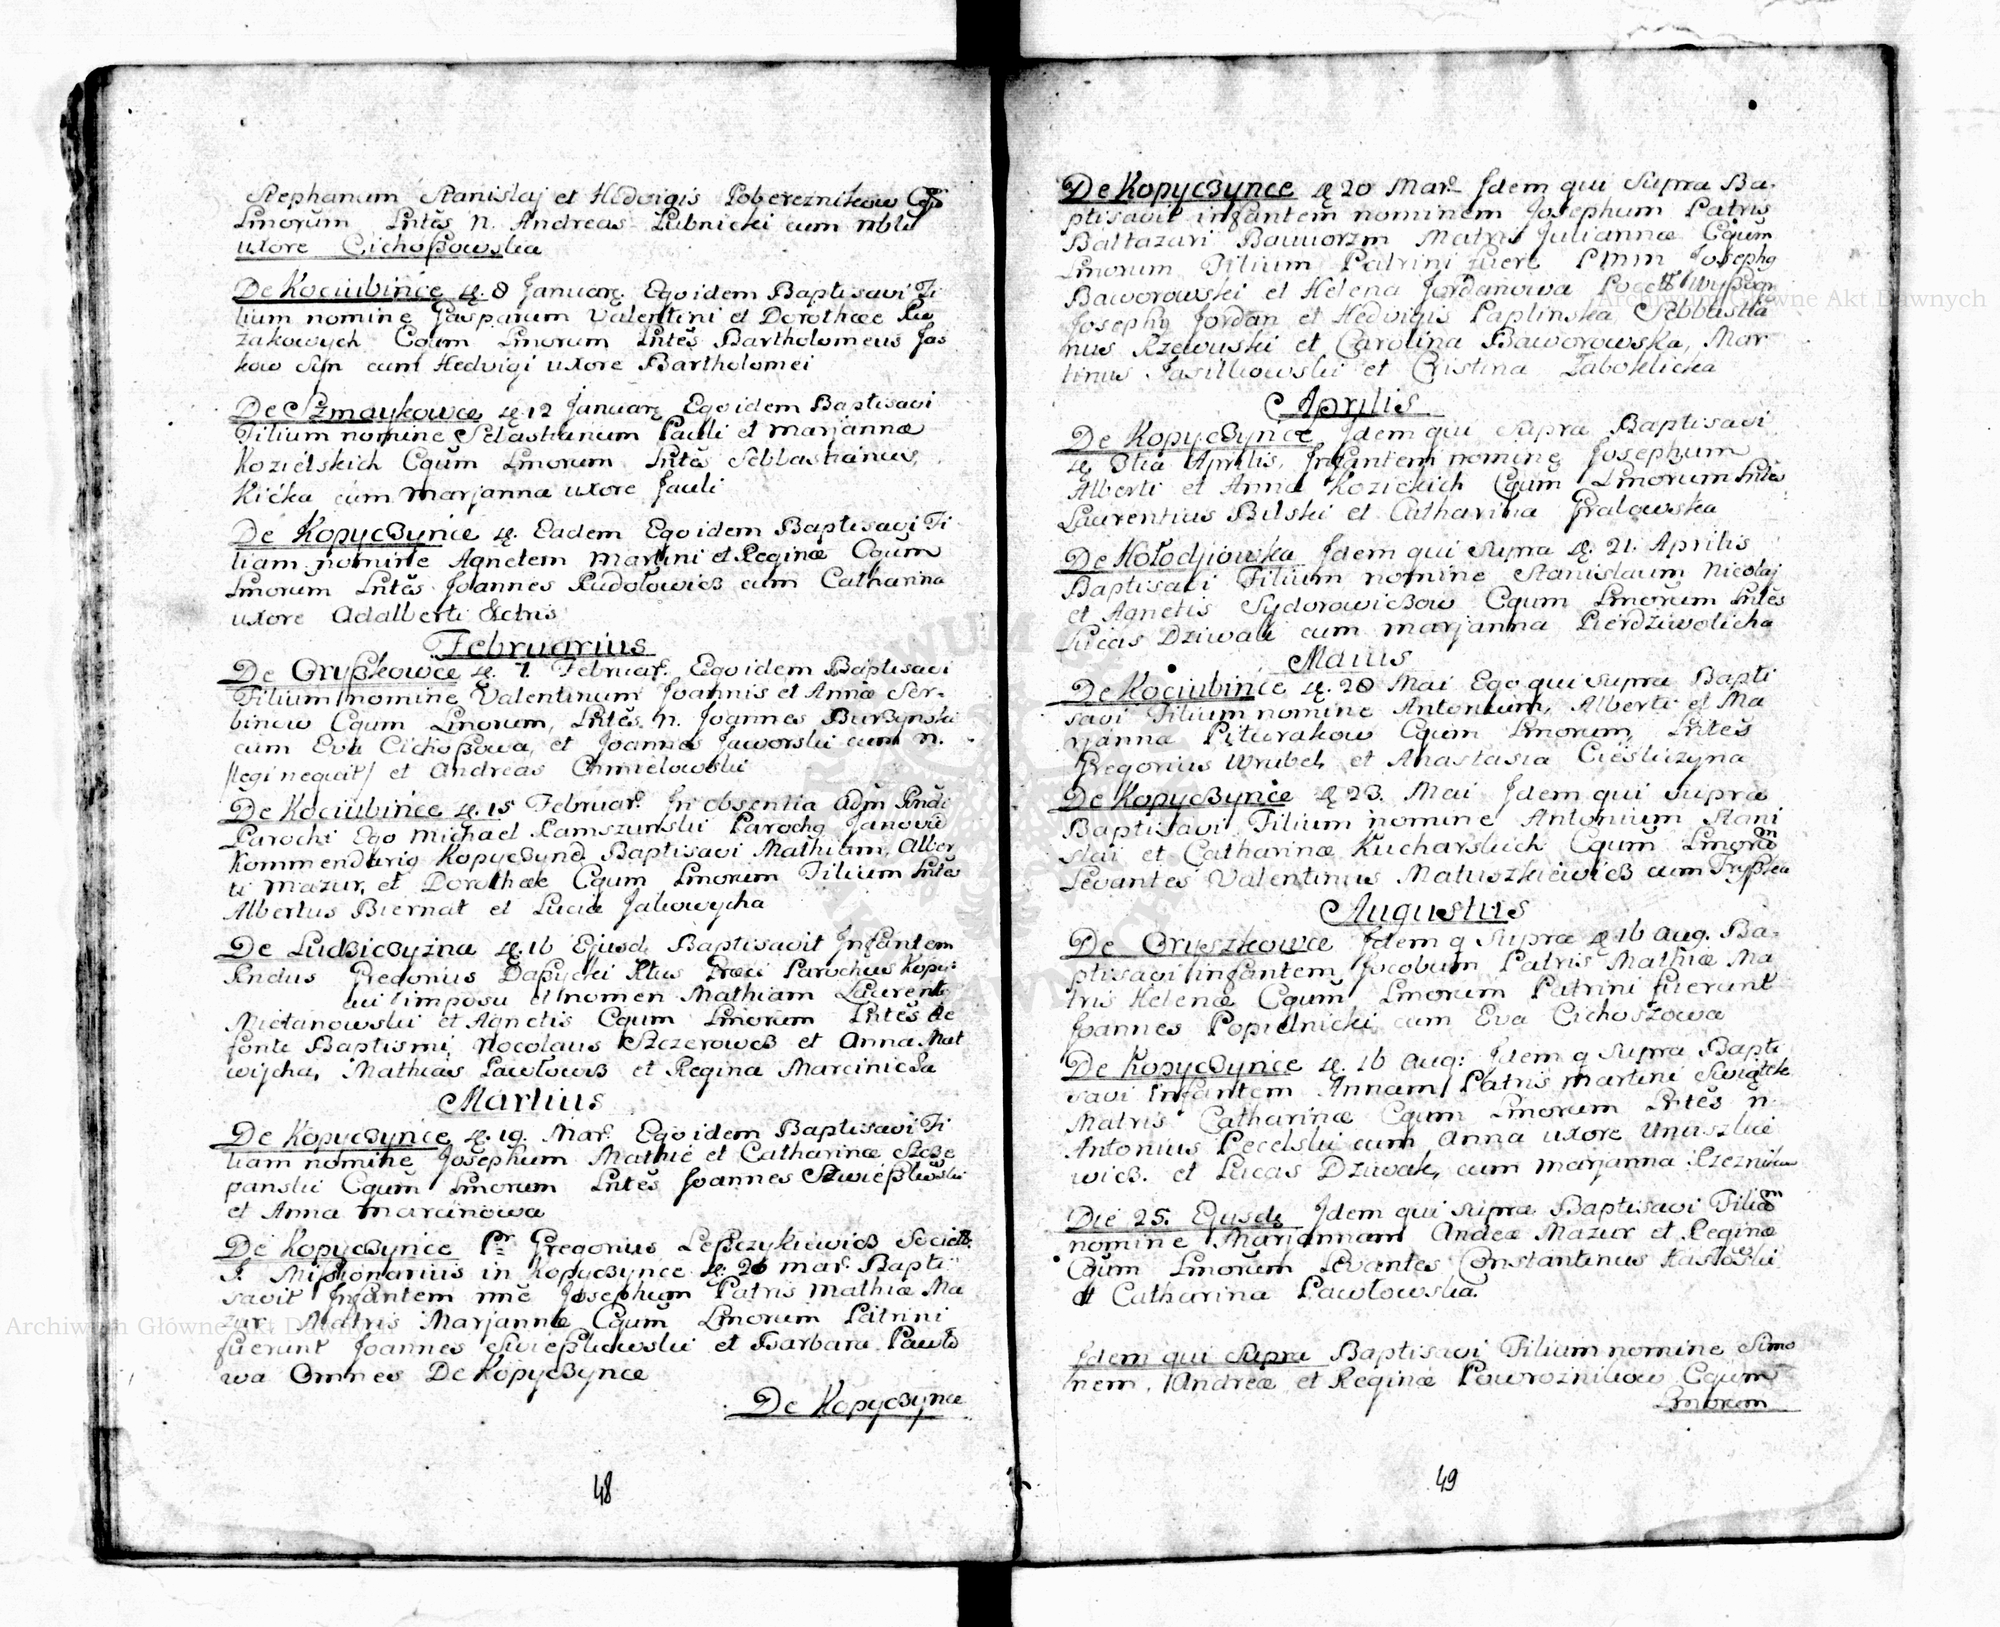 Stephanum Stanislaj et Hedvigis Pobereznikow Cgū
Lmorum Lntēs N. Andreas Lubnicki cum nbli
uxore Cichoßowska
De Kociubince d. 8 Januarȩ Ego idem Baptisavi Fi
lium nomine Gasparum Valentini et Dorotheæ Ku
zakowych Cgum Lmorum Lntēs Bartholomeus Jas
kow Syn cum Hedvigi uxore Bartholomei
De Szmaykowce d. 12 Januarȩ Ego idem Baptisavi
Filium nomine Sebastianum Pauli et Marjannæ
Kozielskich Cgum Lmorum Lntēs Sebbastianus
Kicka cum Marjanna uxore Pauli
De Kopyczynce d. Eadem Ego idem Baptisavi Fi
liam nomine Agnetem Martini et Reginæ Cgum
Lmorum Lntēs Joannes Rudołowicz cum Catharina
uxore Adalberti
Februarius
De Oryßkowce d. 7. Februar. Ego idem Baptisavi
Filium nomine Valentinum Joannis et Annæ Ser-
binow Cgum Lmorum, Lntēs. N. Joannes Burzynski
cum Eva Cichoßowa, et Joannes Jaworski cum N.
/legi nequit/ et Andreas Chmielowski
De Kociubince d. 15 Februar. In absentia Adm Rndi
Parochi Ego Michael Ramszunski Parochq Janovie
Kommendariq Kopyczync. Baptisavi Mathiam, Alber
ti Mazur, et Dorotheæ Cgum Lmorum Filium Lntēs
Albertus Biernat et Lucia Jakowycha
De Ludzicyzna d. 16 Ejusd. Baptisavit Infantem
Rndus Gregorius Dapycki Ritus Græci Parochus Kopy-
cui imposu it nomen Mathiam Laurenti
Mietanowski et Agnetis Cgum Lmorum Lntēs de
fonte Baptismi Nocolaus Szczerowcz et Anna Mat
wijcha, Mathias Pawłowcz et Regina Marcinicza
Martius
De Kopyczynce d. 19. Mar. Ego idem Baptisavi Fi
liam nomine Josephum Mathie et Catharinæ Szcze
panski Cgum Lmorum Lntēs Joannes Swießlewski
et Anna Marcinowa
De Kopyczynce Pr. Gregorius Leßczykiewicz Societ.
J. Mißionarius in Kopyczynce d. 26 Mar. Bapti-
savit Infantem nnē Josephum Patris Mathiæ Ma
zur Matris Marjannæ Cgum Lmorum Patrini
fuerunt Joannes Swießlewski et Barbara Pawło
wa Omnes De Kopyczynce
De Kopyczynce
48
De Kopyczynce d 20 Mar. Idem qui Supra Ba-
ptisavit infantem nominem Josephum Patris
Baltazari Matris Juliannæ Cgum
Lmorum Filium Patrini fuere Josephq
Baworowski et Helena Jordanowa
Josephq Jordan et Hedvigis Paplinska Sebbastia
nus Rzewuski et Carolina Baworowska, Mar
tinus Jasilkowski et Cristina Zaboklicka
Aprilis
De Kopyczynce Idem qui Supra Baptisavi
d. 3tia Aprilis, Infantem nomine Josephum
Alberti et Anna Kozickich Cgum Lmorum Lntēs
Laurentius Bilski et Catharina Gralowska
De Hołodjiowska Idem qui Supra d. 21. Aprilis
Baptisavi Filium nomine Stanislaum Nicolaj
et Agnetis Sydorowiczow Cgum Lmorum Lntēs
Lucas Dziwak cum Marjanna Pierdziwolicha
Maius
De Kociubince d. 20 Mai Ego qui Supra Bapti
savi Filium nomine Antonium, Alberti et Ma
rjanna Piturakow Cgum Lmorum, Lntēs
Gregorius Wrubel, et Anastasia Cieśliczyna
De Kopyczynce d 23. Mai Idem qui Supra
Baptisavi Filium nomine Antonium Stani
slai et Catharinæ Kucharskich Cgum Lmorum
Levantes Valentinus Matuszkiewicz cum Fryßka
Augustus
De Oryszkowce Idem q Supra d 16 Aug. Ba-
ptisavi infantem Jocobum Patris Mathiæ Ma
tris Helenæ Cgum Lmorum Patrini fuerunt
Joannes Popielnicki cum Eva Cichoszowa
De Kopyczynce d. 16 Aug: Idem q Supra Bapti
savi Infantem Annam Patris Martini Swiątek
Matris Catharinæ Cgum Lmorum Lntēs N.
Antonius Pecelski cum Anna uxore Unuszkie
wicz. et Lucas Dziwak, cum Marjanna Rzeznikow
Die 25. Ejusdȩ Idem qui Supra Baptisavi Filiam
nomine Marjannam Andeæ Mazur et Reginæ
Cgum Lmorum Levantes Constantinus
et Catharina Pawłowska.
Idem qui Supra Baptisavi Filium nomine Simo
nem, Andreæ et Reginæ Powroznikow Cgum
Lmorum
49
Archiwum Główne Akt Dawnych
Archiwum Główne Akt Dawnych